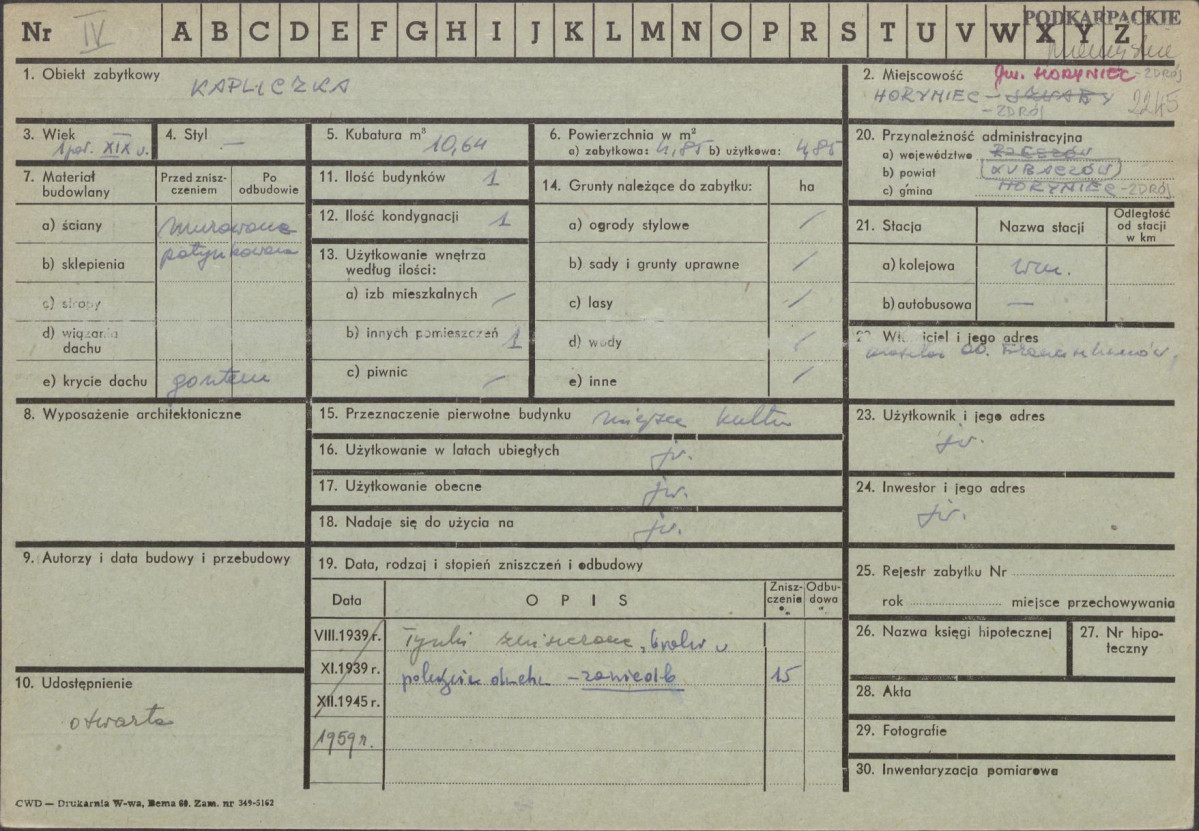 PODKARPACKIE
Nr IV A B C D E F G H I J K L M N O P R S T U V W X Y Z
1. Obiekt zabytkowy
KAPLICZKA
2. Miejscowość gm. HORYNIEC-ZDRÓJ
HORYNIEC -
- ZDRÓJ
2245
3. Wiek
1 poł. XIX w.
4. Styl
—
5. Kubatura m³
10,64
6. Powierzchnia w m²
a) zabytkowa: 4,85 b) użytkowa: 4,85
20. Przynależność administracyjna
a) województwo RZESZÓW
b) powiat LUBACZÓW
c) gmina HORYNIEC-ZDRÓJ
7. Materiał budowlany
Przed zniszczeniem
Po odbudowie
a) ściany murowane
b) sklepienia potynkowana
c) stropy
d) wiązania dachu
e) krycie dachu gontem
11. Ilość budynków 1
12. Ilość kondygnacji 1
13. Użytkowanie wnętrza według ilości:
a) izb mieszkalnych /
b) innych pomieszczeń 1
c) piwnic /
14. Grunty należące do zabytku: ha
a) ogrody stylowe /
b) sady i grunty uprawne /
c) lasy /
d) wody /
e) inne /
21. Stacja
Nazwa stacji
Odległość od stacji w km
a) kolejowa wm.
b) autobusowa —
22. Właściciel i jego adres
OO. Franciszkanów,
8. Wyposażenie architektoniczne
15. Przeznaczenie pierwotne budynku miejsce kultu
16. Użytkowanie w latach ubiegłych jw.
17. Użytkowanie obecne jw.
18. Nadaje się do użycia na jw.
23. Użytkownik i jego adres
jw.
24. Inwestor i jego adres
jw.
9. Autorzy i data budowy i przebudowy
19. Data, rodzaj i stopień zniszczeń i odbudowy
Data
OPIS
Zniszczenie %
Odbudowa %
VIII.1939 r. Tynki zniszczone,
XI.1939 r. - zaniedb 15
XII.1945 r.
1959 r.
25. Rejestr zabytku Nr
rok miejsce przechowywania
26. Nazwa księgi hipotecznej
27. Nr hipoteczny
10. Udostępnienie
otwarta
28. Akta
29. Fotografie
30. Inwentaryzacja pomiarowa
CWD — Drukarnia W-wa, Bema 60. Zam. nr 349-5162